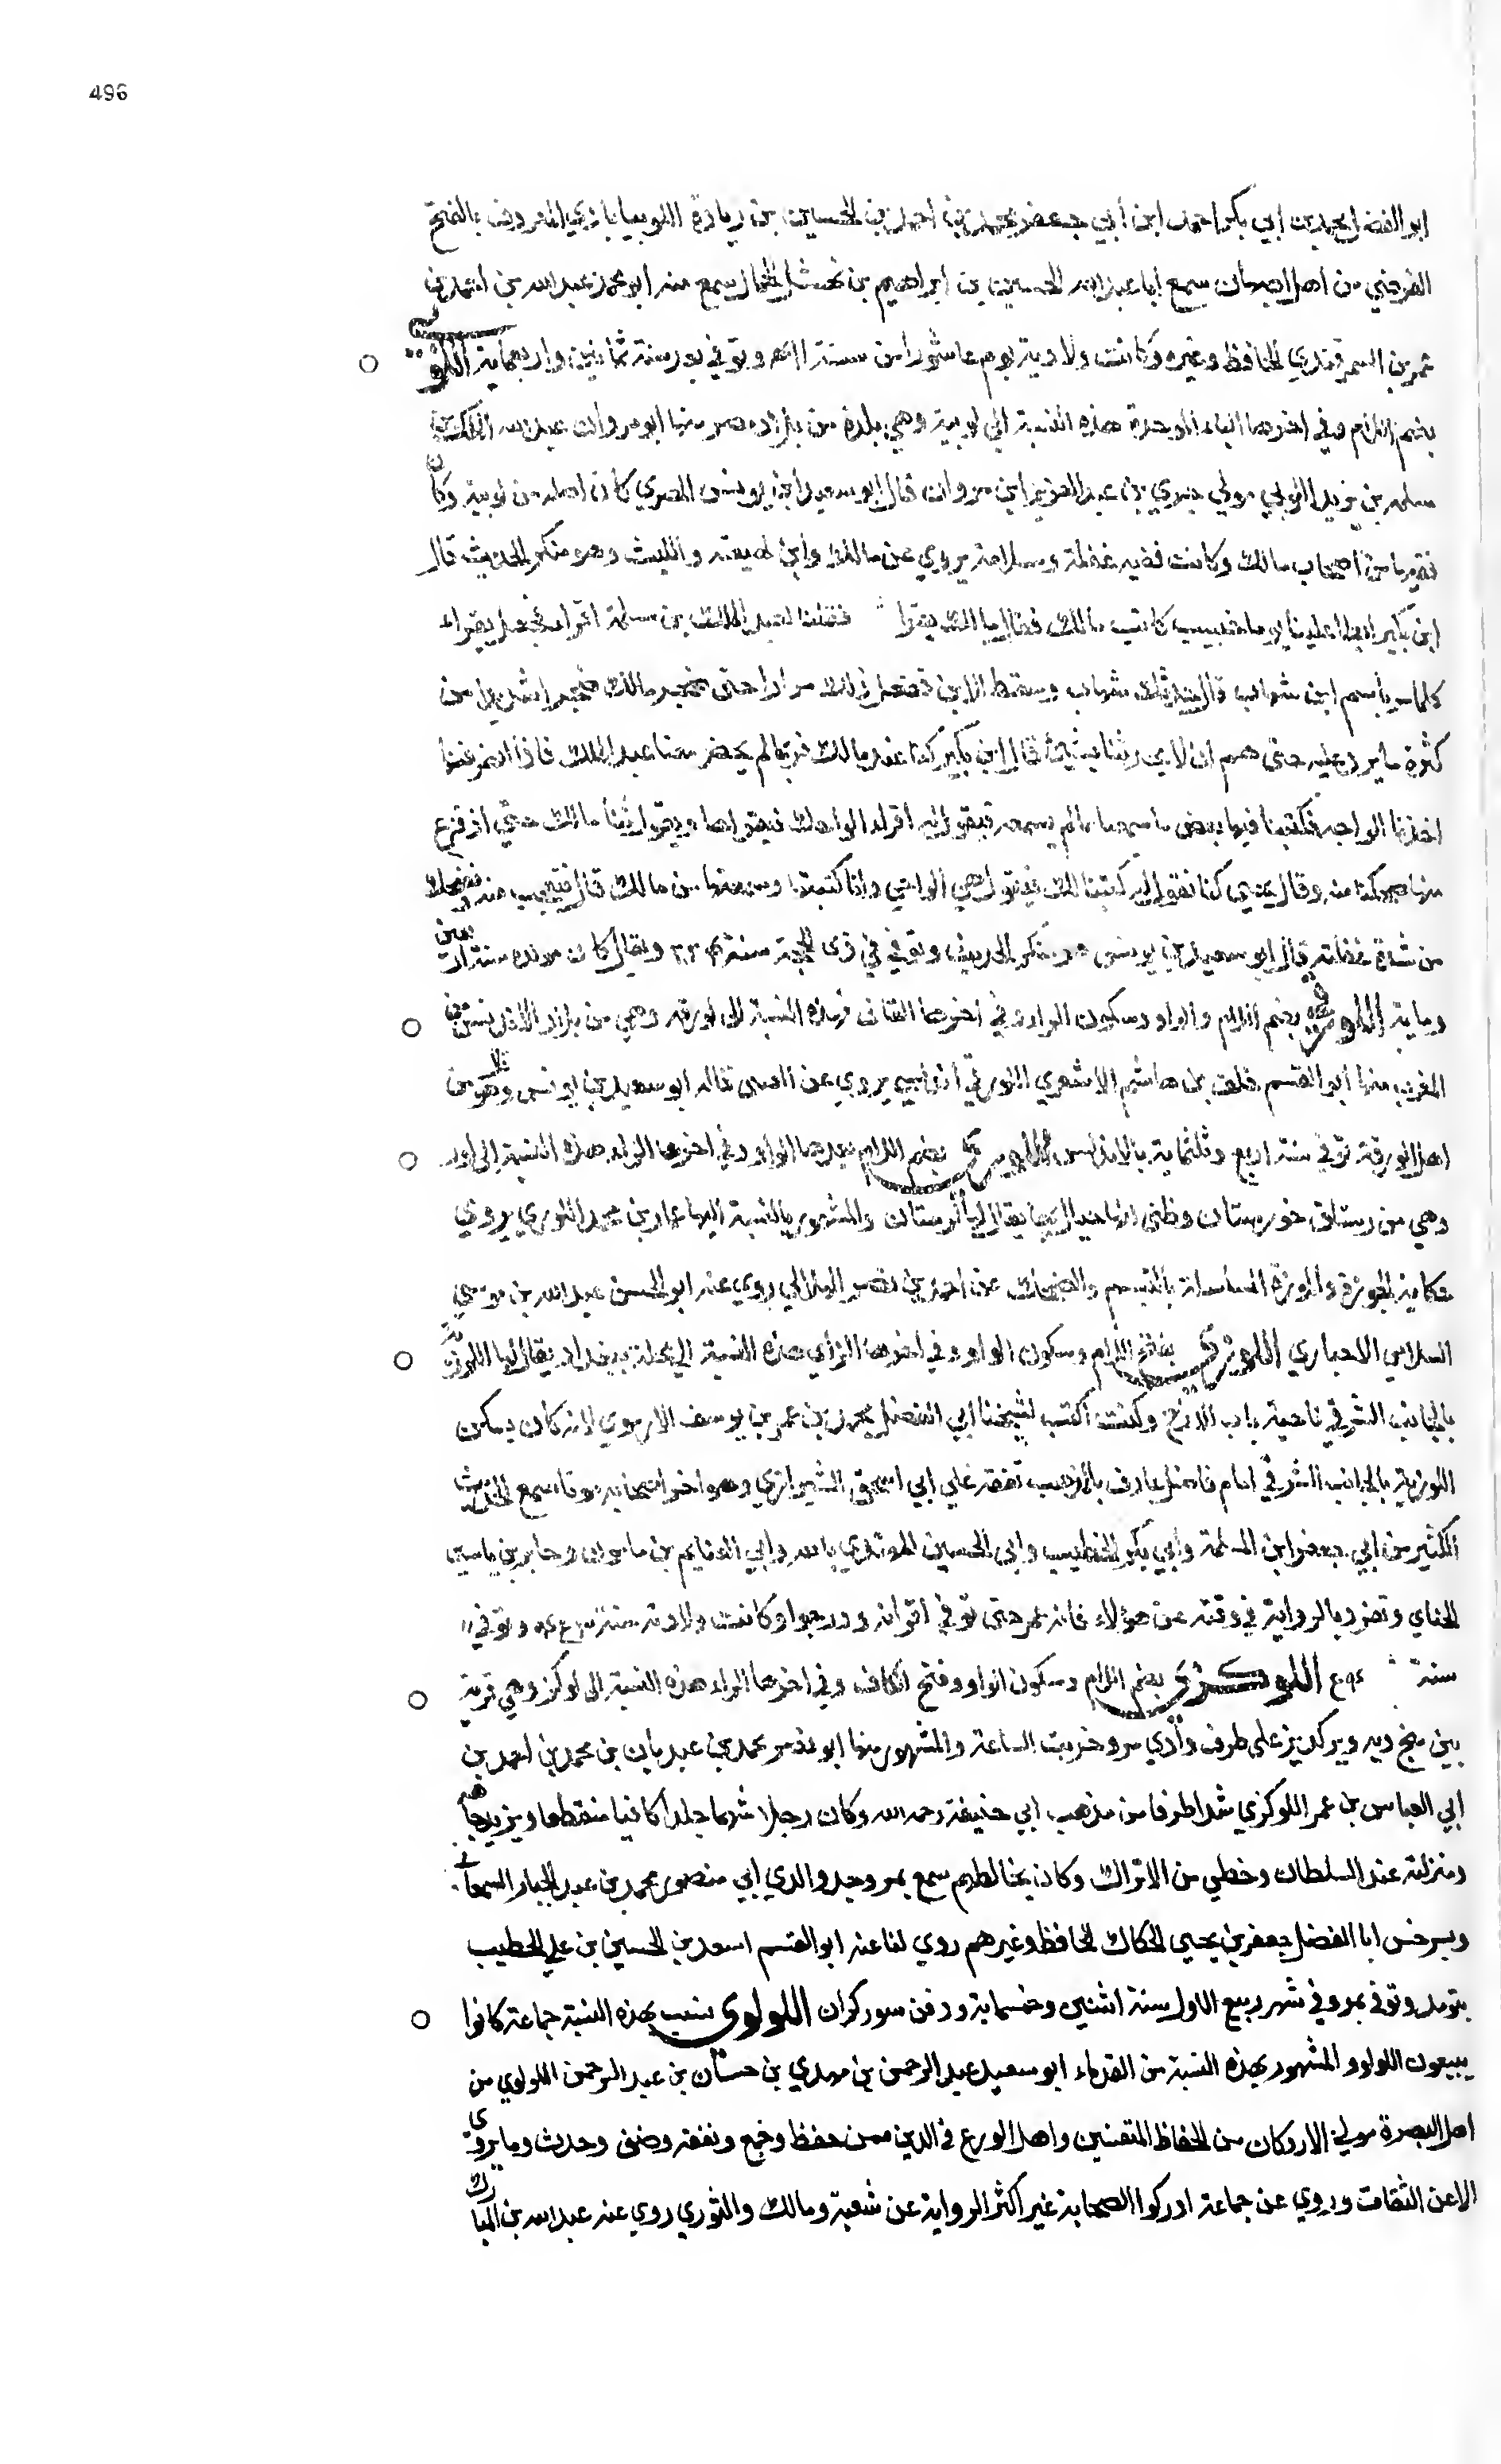 496
ابو الفضل محمد بن ابي بكر احمد ابن أبي جعفر محمد بن احمد بن الحسين بن زيادة اللوبيا باذي المعروف بالفتح
من اهل اصبهان سمع أبا عبد الله الحسين بن ابراهيم بن الجمال سمع منه ابو محمد عبد الله بن احمد بن
عمر بن السمرقندي الحافظ وغيره وكانت ولادته يوم عاشورا من سنة وتوفي بعد سنة ثمانين واربعماية اللوبي
بضم اللام وفي اخرها الباء الموحدة هذه النسبة الي لوبية وهي بلدة من بلاد مصر منها ابو مروان عبد الملك بن
مسلمه بن يزيد اللوبي مولي جزي بن عبد العزيز ابن مروان قال ابو سعيد ابن يونس المصري كان اصله من لوبية وكان
فقيها من اصحاب مالك وكانت فيه غفلة وسلامة يروي عن مالك وابن لهيعة والليث وهو منكر الحديث قال
ابن بكير يوما حبيب كاتب مالك فقال مالك يقرا فقلنا لعبد الملك بن مسلمة اقرا فجعل يقراء
كلما مر باسم ابن شهاب قال شهاب وسقط ابن ففعل ذلك مرارا حتى ضجر مالك ضجرا شديدا من
كثرة ما يرد عليه حتى هم ان لا يحدثنا بشيء قال ابن بكير كنا عند مالك فربما لم يحضر معنا عبد الملك فاذا انصرفنا
اخذنا الواحه فكتبنا فيها بعض ما سمعنا مالم يسمعه فيقول له اقرا الواحك فيقراها ويقول ثنا مالك حتي اذ فرغ
منها ضحكنا منه وقال يحيي كنا نقول له كتبنا لك فيقول هي الواحي وانا كتبتها وسمعتها من مالك قال فنتعجب منه ونضحك
من شدة غفلته قال ابو سعيد بن يونس هو منكر الحديث وتوفي في ذي الحجة سنة ويقال كان مولده سنة اربعين
وماية اللورقي بضم اللام والواو وسكون الراء وفي اخرها القاف هذه النسبة الى لورقه وهي من بلاد الاندلس من
المغرب منها ابو القسم خلف بن هاشم الاشعري اللورقي اندلسي يروي عن العتبى قاله ابو سعيد بن يونس وقال هو من
اهل لورقة توفي سنة اربع وثلثماية بالاندلس اللوري بضم اللام بعدها الواو وفي اخرها الراء هذه النسبة إلى لور
وهي من رستاق خوزستان وظني انها جبال بها يقال لها لرستان والمشهور بالنسبة اليها عمار بن محمد اللوري يروي
حكاية الجوزة والموزة المسلسلة بالتبسم والضحك عن احمد بن نصر الهلالي روي عنه ابو الحسن عبد الله بن موسي
السلامي الاخباري اللوزي بفتح اللام وسكون الواو وفي اخرها الزاي هذه النسبة الي محلة ببغداد يقال لها اللوزية
بالجانب الشرقي ناحية باب الازج وكنت اكتب لشيخنا أبي الفضل محمد بن عمر بن يوسف الارموي لانه كان يسكن
اللوزية بالجانب الشرقي امام فاضل عارف بالمذهب تفقه علي ابي اسحق الشيرازي وهو اخر اصحابه وقد سمع الحديث
الكثير من ابي جعفر ابن المسلمة وابي بكر الخطيب وابي الحسين المهتدي بالله وابي الغنايم بن مامون وجابر بن ياسين
الحناي وتفرد بالرواية في وقته عن هؤلاء فانه عمر حتى توفي اقرانه ودرجوا وكانت ولادته سنة وتوفي
سنة اللوكري بضم اللام وسكون الواو وفتح الكاف وفي اخرها الراء هذه النسبة الى لوكر وهي قرية
بين پنج ديه وبركدبز على طرف وادي مرو خربت الساعة والمشهور منها ابو نصر محمد بن عبد بان بن محمد بن احمد بن
ابي العباس بن عمر اللوكري شدا طرفا من مذهب ابي حنيفة رحمه الله وكان رجلا شهما جلدا كافيا منقطعا ويزيد جاهه
ومنزلته عند السلطان وخطي من الاتراك وكان يخالطهم سمع بمرو جد والدي ابي منصور محمد بن عبد الجبار السمعاني
وبسرخس ابا الفضل جعفر بن يحيى الحكاك الحافظ وغيرهم روي لنا عنه ابو القسم اسعد بن الحسين بن علي الخطيب
وتوفي بمرو في شهر ربيع الاول سنة اثنتين وخمسماية ودفن سور كران اللولوي نسب بهذه النسبة جماعة كانوا
يبيعون اللولو والمشهور بهذه النسبة من القدماء ابو سعيد عبد الرحمن بن مهدي بن حسان بن عبد الرحمن اللولوي من
اهل البصرة مولى الازد كان من الحفاظ المتقنين واهل الورع في الدين ممن حفظ وجمع وتفقه وصنف وحدث وما يروي
الا عن الثقات وروي عن جماعة ادركوا الصحابة غير اكثر الرواية عن شعبة ومالك والثوري روي عنه عبد الله بن المبارك